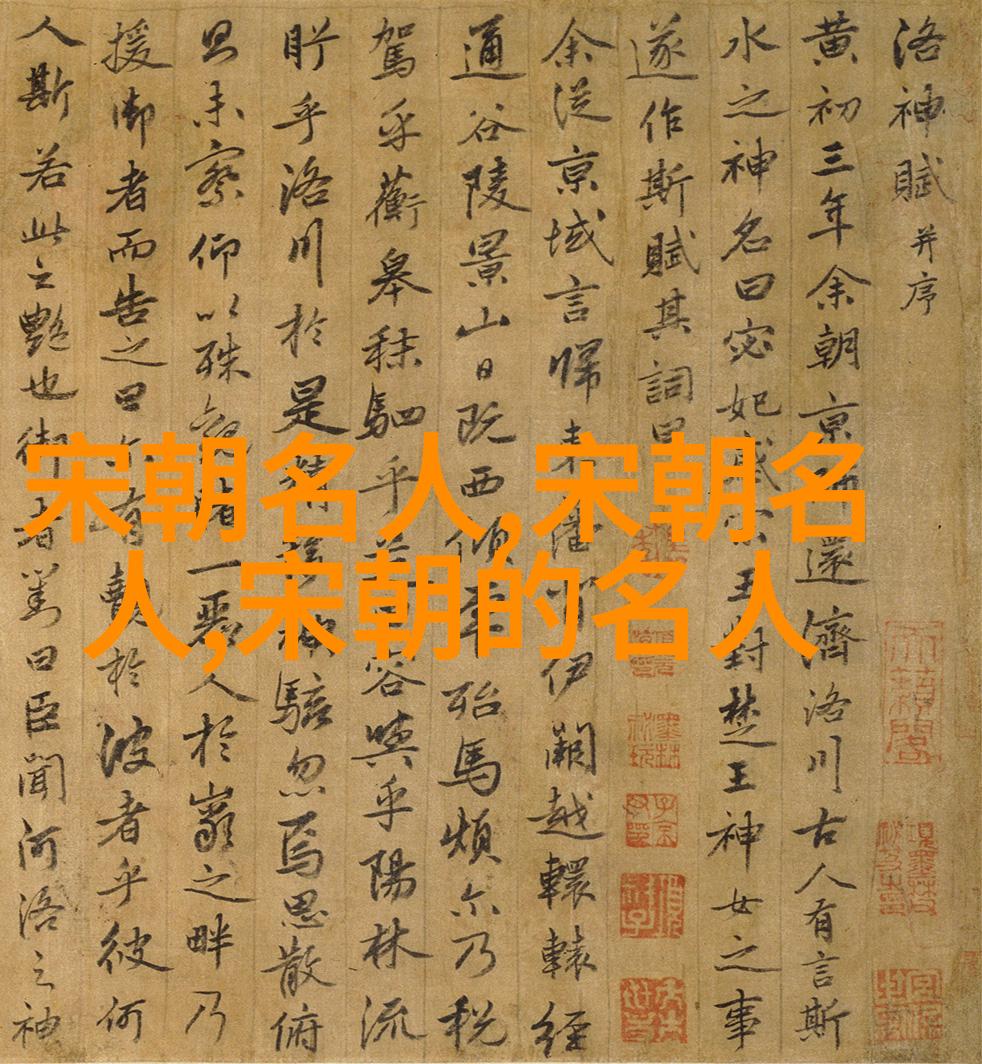 洛神賦并序
黄初三年余朝京還濟洛川古人有言斯
水之神名曰宓妃感宋玉對楚王神女之事
遂作斯賦其詞曰
余從京域言歸東藩伊闕越轘轅經
通谷陵景山日既西傾車殆馬煩尒乃税
駕乎蘅皋秣駟乎容與乎陽林流
眄乎洛川於是精神駭忽焉思散俯
則未察仰以殊觀睹一麗人於巖之畔乃
援御者而告之曰尒有覿於彼者乎彼何
人斯若此之艷也御者對曰臣聞河洛之神
宋朝名人,宋朝名
人,宋朝的名人